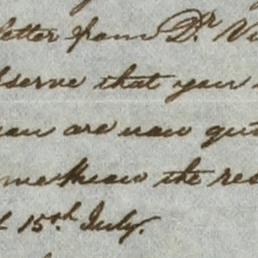 letter from Dr. V
observe that your
you are now qui
me know the re
15th. July.